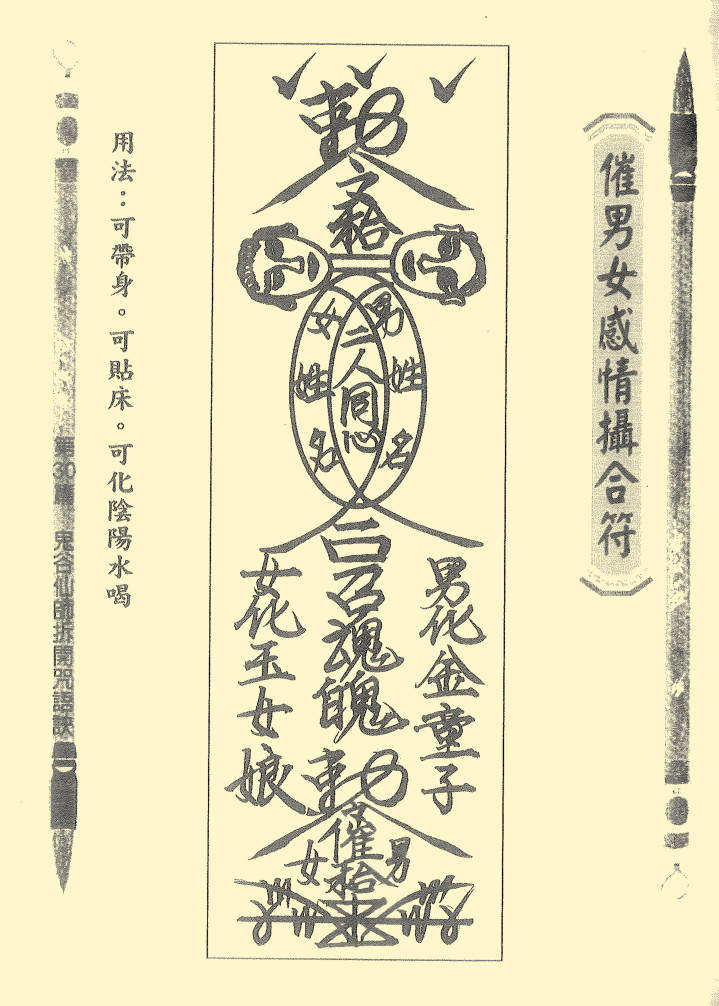 催男女感情攝合符
勅
令
男姓名
二人同心
女姓名
男化金童子
召魂魄
女化玉女娘
勅
催
男
女
用法：可帶身。可貼床。可化陰陽水喝
第30篇 鬼谷仙師拆開咒語訣